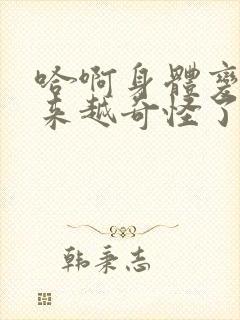 哈啊身體變
来越奇怪了
韩秉志